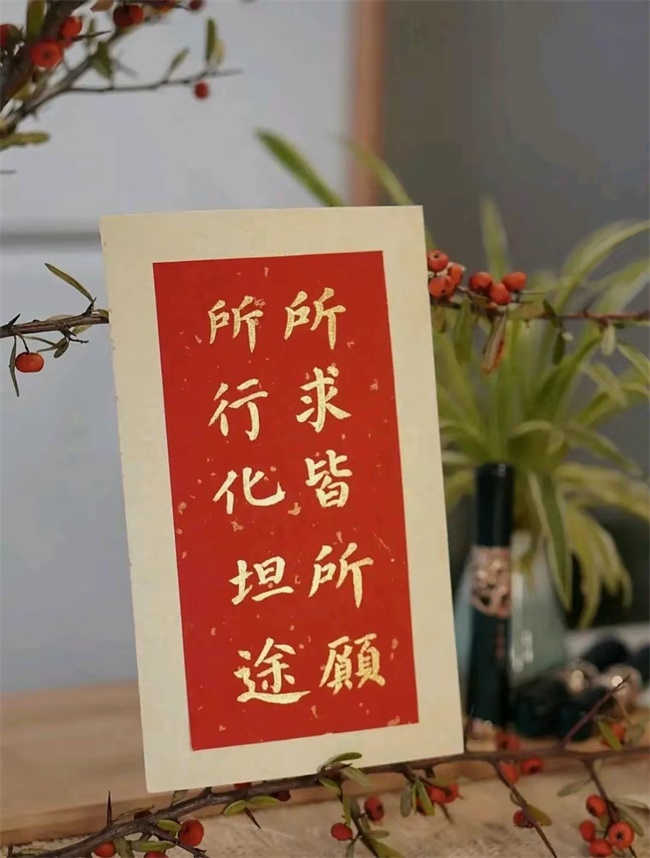 所求皆所願
所行化坦途